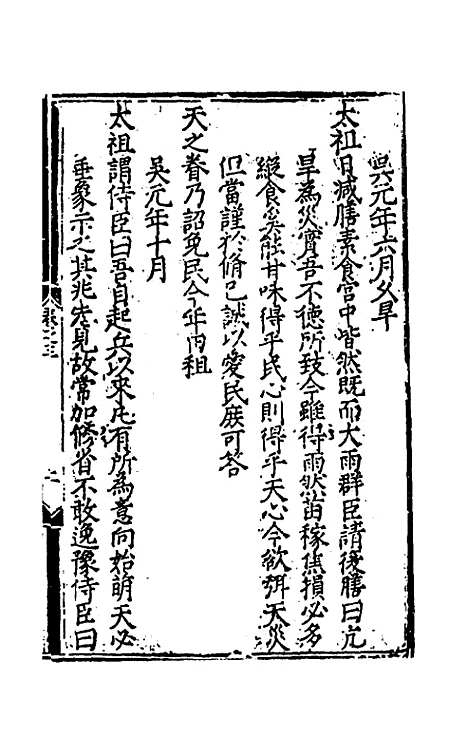 吳元年六月久旱
太祖日減膳素食宮中皆然既而大雨群臣請復膳曰亢
旱為災實吾不德所致今雖得雨然苗稼焦損必多
縱食奚能甘味得乎民心則得乎天心今欲弭天災
但當謹於脩己誠以愛民庶可答
天之眷乃詔免民今年內租
吳元年十月
太祖謂侍臣曰吾自起兵以來凡有所為意向始萌天必
垂象示之其兆先見故常加修省不敢逸豫侍臣曰